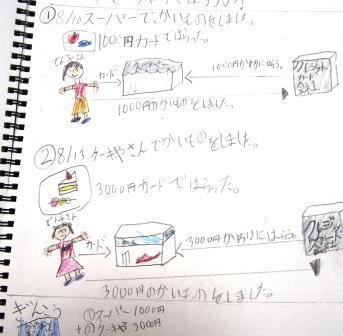 ①8/10スーパーでかいものをしました。
1000円カードではらった。
カード
1000円かわりにはらう。
クレジット
カード
会社
1000円のかいものをしました。
②8/13ケーキやさんでかいものをしました。
3000円カードではらった。
カード
3000円かわりにはらう。
クレジット
3000円のかいものをしました。
ぎんこう
①スーパー1000円
+②ケーキや3000円